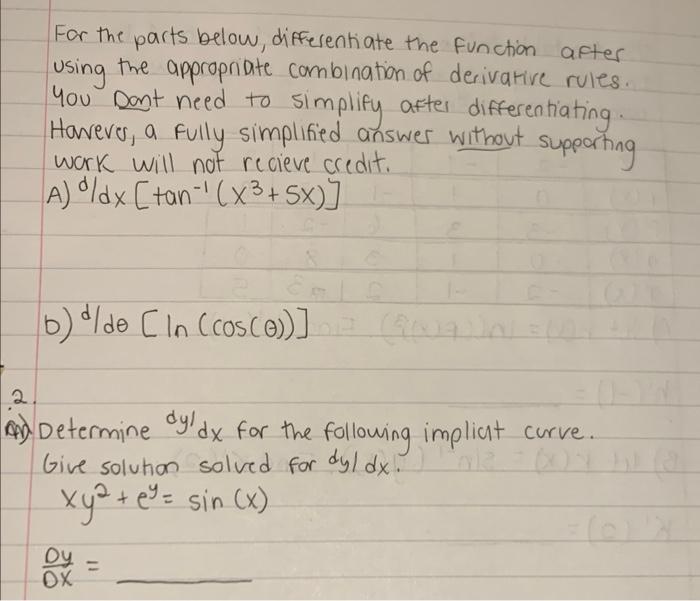 For the parts below, differentiate the function after
using the appropriate combination of derivative rules.
You Dont need to simplify after differentiating.
However, a fully simplified answer without supporting
work will not recieve credit.
A) d/dx [tan⁻¹ (x³ + 5x)]
b) d/dθ [ln (cos(θ))]
2.
Determine dy/dx for the following implicit curve.
Give solution solved for dy/dx.
xy² + e^y = sin (x)
Dy/DX = ______